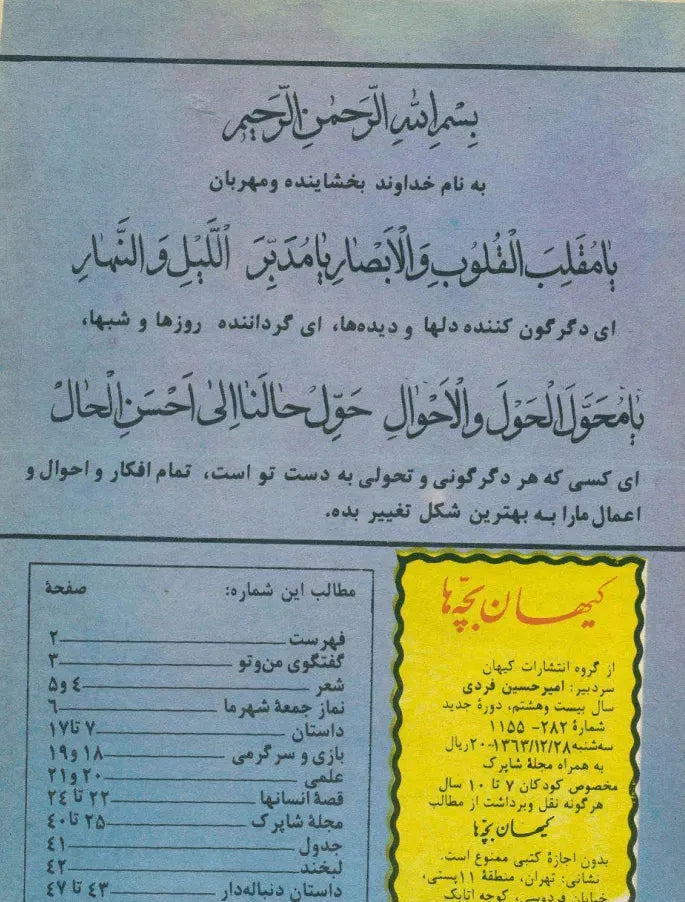 بِسْمِ اللهِ الرَّحمٰنِ الرَّحیمِ
به نام خداوند بخشاینده ومهربان
یا مُقَلِبَ الْقُلُوبِ وَ الْاَبْصارِ یا مُدَبِّرَ الْلَیْلِ وَ النَّهارِ
ای دگرگون کننده دلها و دیده‌ها، ای گرداننده روزها و شبها،
یا مُحَوِّلَ الْحَوْلَ وَ الْاَحْوالِ حَوِّلْ حالَنا اِلیٰ اَحْسَنِ الْحالْ
ای کسی که هر دگرگونی و تحولی به دست تو است، تمام افکار و احوال و
اعمال مارا به بهترین شکل تغییر بده.
کیهان بچّه‌ها
از گروه انتشارات کیهان
سردبیر: امیرحسین فردی
سال بیست وهشتم، دورهٔ جدید
شمارهٔ ۲۸۲- ۱۱۵۵
سه‌شنبه ۱۳۶۳/۱۲/۲۸-۲۰ ریال
به همراه مجلهٔ شاپرک
مخصوص کودکان ۷ تا ۱۰ سال
هرگونه نقل وبرداشت از مطالب
کیهان بچّه‌ها
بدون اجازهٔ کتبی ممنوع است.
نشانی: تهران، منطقهٔ ۱۱پستی،
خیابان فردوسی، کوچه اتابک
مطالب این شماره: صفحهٔ
فهرست ۲
گفتگوی من‌وتو ۳
شعر ۴ و۵
نماز جمعهٔ شهرما ۶
داستان ۷ تا ۱۷
بازی و سرگرمی ۱۸ و۱۹
علمی ۲۰ و ۲۱
قصهٔ انسانها ۲۲ تا ۲۴
مجلهٔ شاپرک ۲۵ تا ۴۰
جدول ۴۱
لبخند ۴۲
داستان دنباله‌دار ۴۳ تا ۴۷